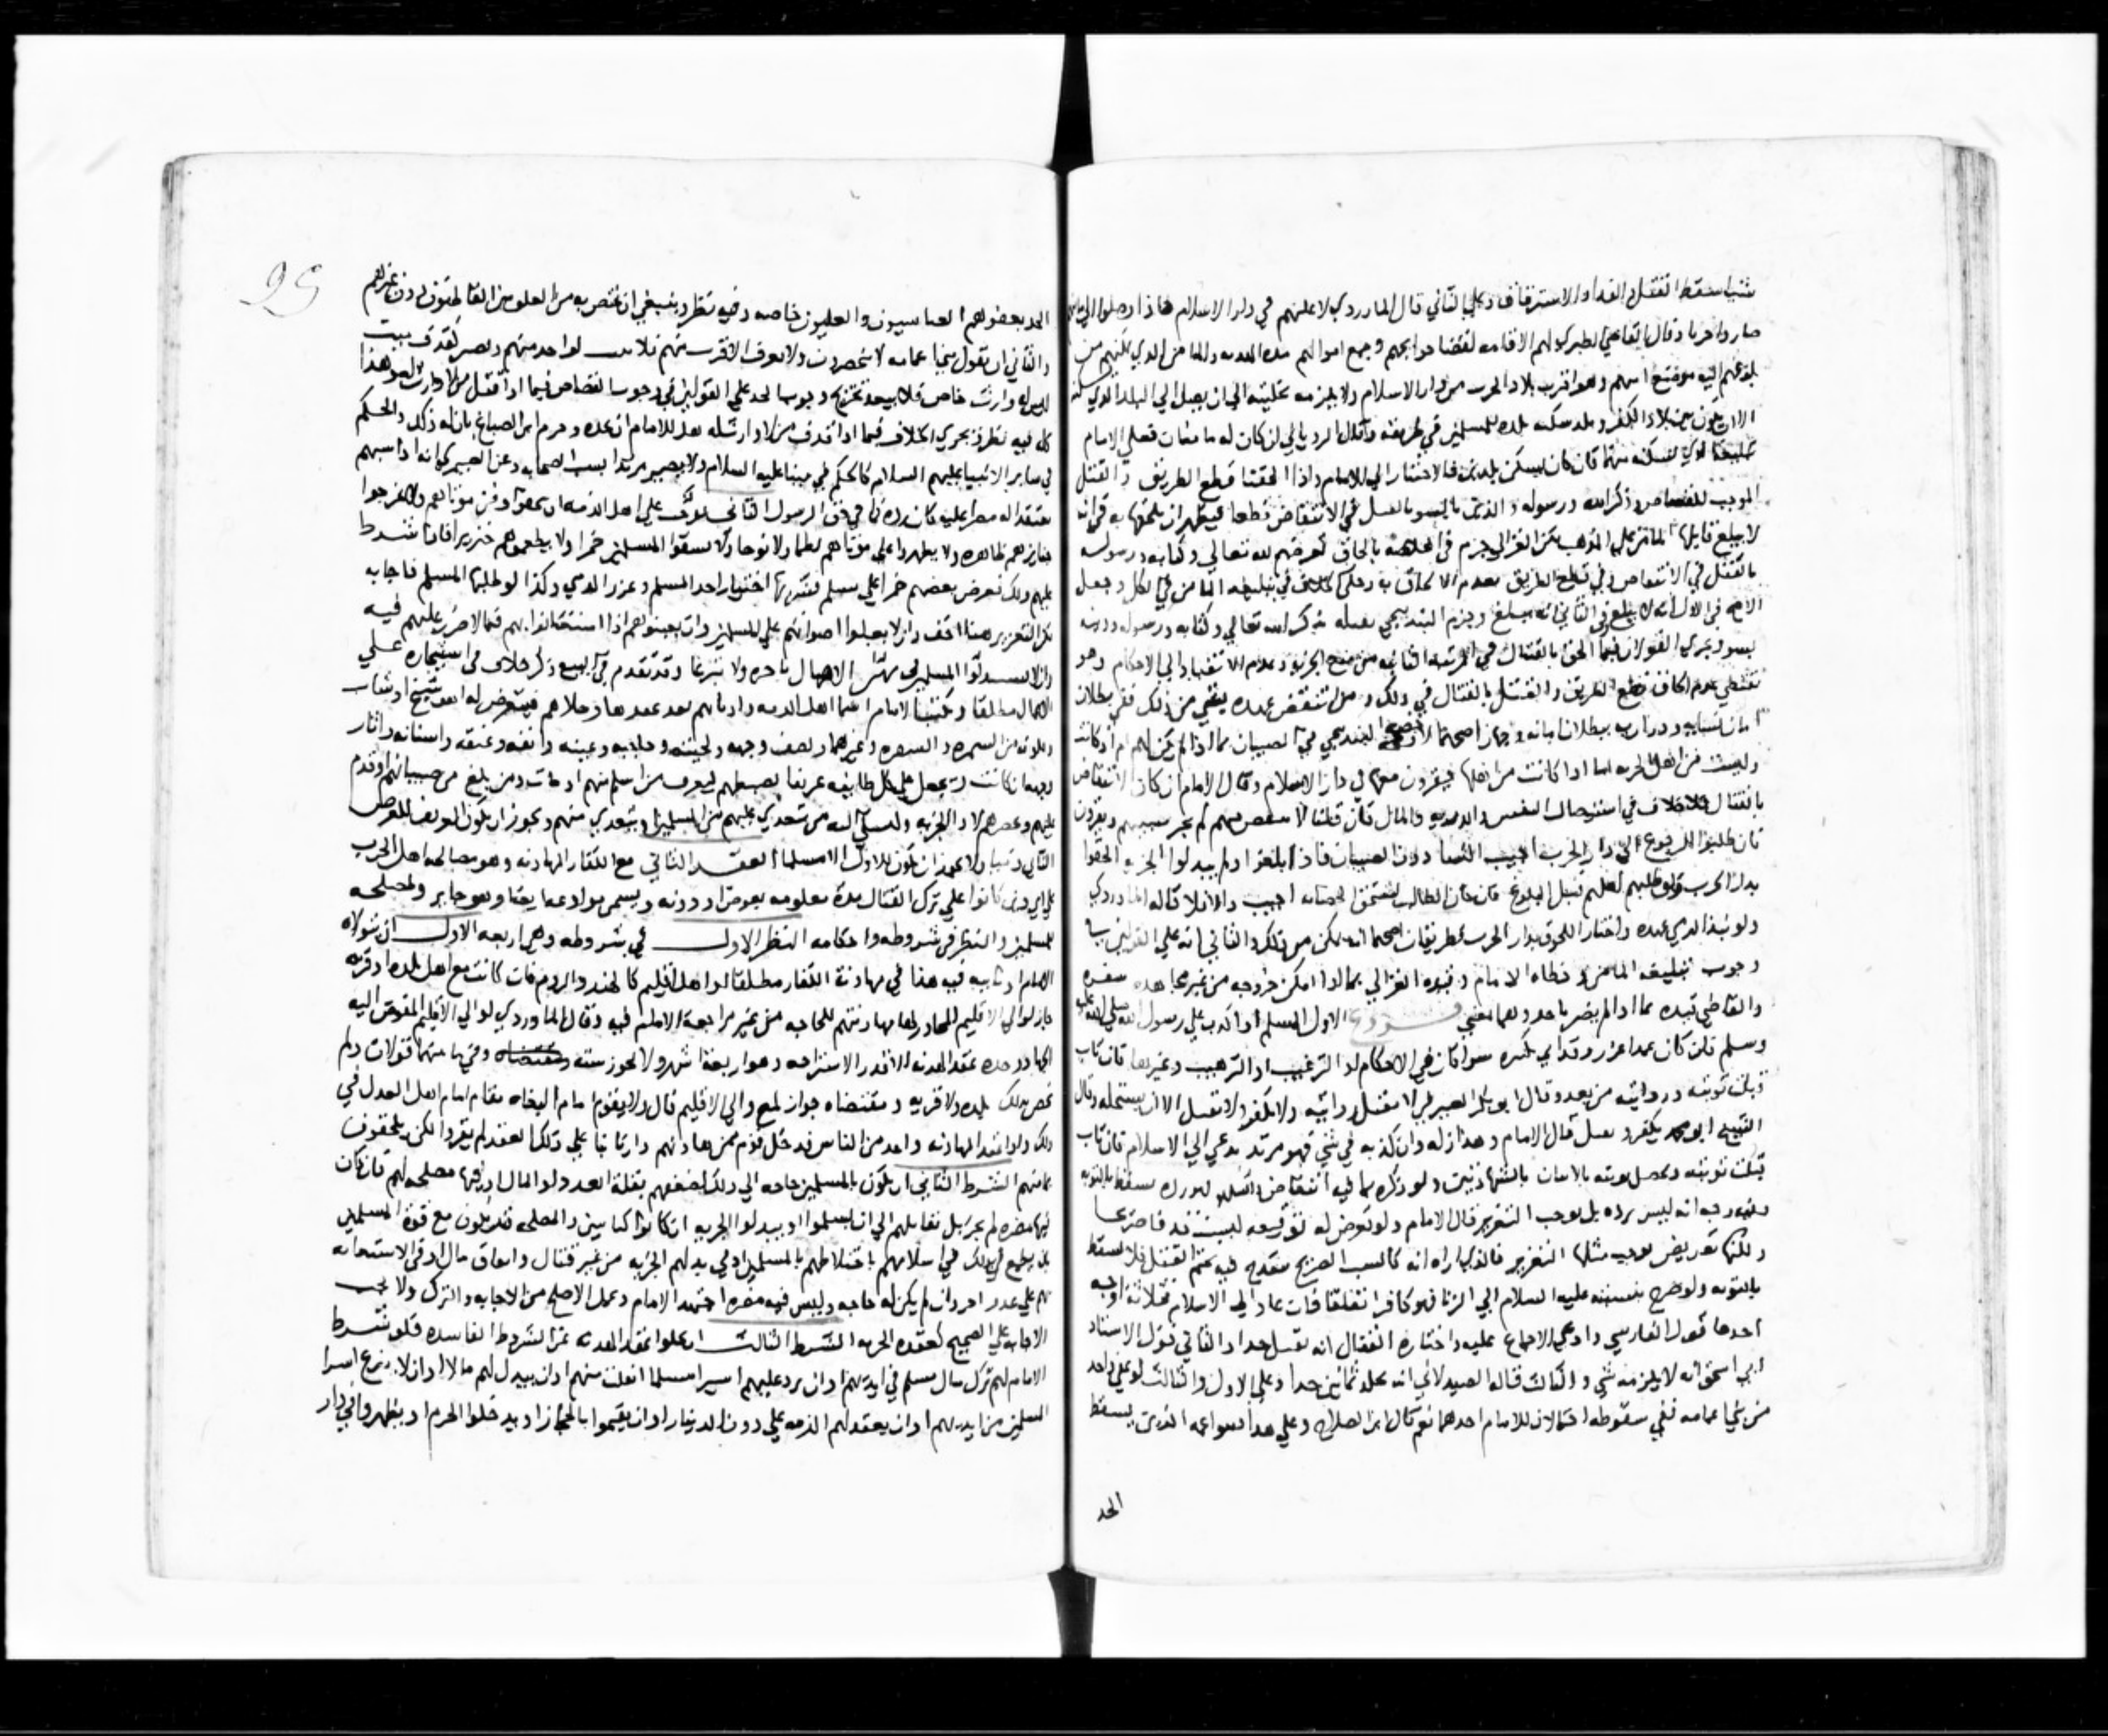 شيا سقط القتل والفدا والاسترقاق وعلى الثاني قال الماوردي لا عليهم في دار الاسلام فاذا وصلوا الى
صاروا حربا وقال القاضي الطبري لهم الاقامه لقضا حوايجهم وجمع اموالهم والمامن الذي يلزم من
بلوغهم اليه موضع امنهم وهو اقرب بلاد الحرب من دار الاسلام ولا يلزمه تبليغه الى ان يصل الى البلد الذي
الا ان يكون بين بلاد الكفر وبلد سكنه بلده للمسلمين في طريقه وقال الروياني ان كان له مامنان فعلى الامام
تبليغه الذي يسكنه منهما فان كان يسكن بلدين فالاختيار الى الامام واذا الحقنا قطع الطريق والقتل
الموجب للقصاص وذكر الله ورسوله والدين بالسو بالقتال في الانتقاض قطعا فيظهر ان يلحقها به
بالقتل في الانتقاض وفي قطع الطريق
الاصح في الاول انه لا يبلغ وفي الثاني انه يبلغ وجزم البندنيجي بذكر الله تعالى وكتابه ورسوله ودينه
بسو ويجري القولان فيما الحق بالقتال في المرتبة الثانيه من منع الجزيه وعدم الانقياد الى الاحكام وهو
يقتضي عدم الحاق قطع الطريق والقتل بالقتال في ذلك ومن انتقض عهده بقي من ذلك ففي بطلان
امان نسايه وذراريه ببطلان امانه وجهان اصحهما لا
وليست من اهل الحرب اما اذا كانت من اهلها فيقرون معها في دار الاسلام وقال الامام ان كان الانتقاض
بالقتال فلا خلاف في استيصال النفس والذريه والمال فان قلنا لا ينتقض عهدهم لم يجز سبيهم ويقرون
فان طلبوا الرجوع الى دار الحرب اجيب النسا دون الصبيان فاذا بلغوا ولم يبذلوا الجزيه الحقوا
بدار الحرب ولو طلبهم اهلهم قبل البلوغ فان كان الطالب يستحق الحضانه اجيب والا فلا قاله الماوردي
ولو نبذ الذمي عهده واختار اللحوق بدار الحرب فطريقان اصحهما انه يمكن من ذلك والثاني انه على القولين في
وجوب تبليغه المامن وخطاه الامام وقيده الغزالي بما اذا امكن خروجه من غير مجاهده
والقاضي قيده بما اذا لم يضر باحد وهما بمعنى فروع الاول المسلم اذا كذب على رسول الله صلى الله عليه
وسلم فان كان عمدا عزر وقد اتى كبيره سوا كان في الاحكام او الترغيب او الترهيب وغيرها فان تاب
قبلت توبته وروايته من بعد وقال ابو بكر الصيرفي لا تقبل روايته ولا يكفر ولا يقتل الا ان يستحله وقال
الشيخ ابو محمد يكفر ويقتل قال الامام وهذا زله وان كذبه في شي فهو مرتد يدعى الى الاسلام فان تاب
قبلت توبته وتحصل توبته بالاتيان بالشهادتين
وفيه وجه انه ليس برده بل يوجب التعزير قال الامام ولو تعرض له لوقيعه ليست قذفا صريحا
ولكنها تعريض يوجب مثلها التعزير فالذي اراه انه كالسب الصريح فيه بحتم القتل فلا يسقط
بالتوبه ولو صرح بنسبته عليه السلام الى الزنا فهو كافر اتفاقا فان عاد الى الاسلام فثلاثة اوجه
احدها قول الفارسي وادعى الاجماع عليه واختاره القفال انه يقتل حدا والثاني قول الاستاذ
ابي اسحق انه لا يلزمه شي والثالث قاله الصيدلاني انه يجلد ثمانين حدا وعلى الاول والثالث لو عفى واحد
من بني اعمامه ففي سقوطه احتمالان للامام احدهما نعم قال ابن الصلاح وعلى هذا بنوا عمه الذين يسقط
الحد
95
الحد بعفوهم العباسيون والعلويون خاصه وفيه نظر وينبغي ان يختص به من العلويين الفاطميون دون غيرهم
والثاني ان يقول بنوا اعمامه لا ينحصرون ولا يعرف الاقرب منهم لواحد منهم ويصير كقذف ميت
ليس له وارث خاص فلا يبعد تخريج وجوب الحد على القولين في وجوب القصاص فيما اذا قتل من لا وارث له وهذا
كله فيه نظر فيجري الخلاف فيما اذا قذف من لا وارث له هل للامام ان يحده وجزم ابن الصباغ بان له ذلك والحكم
في ساير الانبيا عليهم السلام كالحكم في نبينا عليه السلام ولا يصير مرتدا بسب الصحابه وعن الصيمري انه اذا سبهم
معتقدا له مصرا عليه كان رده في حق الرسول الثاني يوخذ على اهل الذمه ان يخفوا دفن موتاهم ولا يخرجوا
جنايزهم ظاهره ولا يظهروا على موتاهم لطما ولا نوحا ولا يسقوا المسلمين خمرا ولا يطعموهم خنزيرا فان شرط
عليهم ذلك فعرض بعضهم خمرا على مسلم فشربها اختيارا حد المسلم وعزر الذمي وكذا لو طلبها المسلم فاجابه
لكن التعزير هنا اخف وان لا يعلوا اصواتهم على المسلمين وان يعينوهم اذا استعانوا بهم فيما لا ضرر عليهم فيه
وان لا يستذلوا المسلمين في مهن الاعمال باجره ولا تبرعا وقد تقدم في البيع ذكر خلاف في استيجاره على
الاعمال مطلقا ويكتب الامام اسما اهل الذمه واديانهم بعد عقدها وحلاهم فيتعرض له اهو شيخ او شاب
ولونه من السمره والصفره وغيرهما ويصف وجهه ولحيته وحاجبيه وعينيه وانفه وعنقه واسنانه واثار
وجهه ان كانت ويجعل على كل طايفه عريفا يضبطهم ليعرف من اسلم منهم او مات ومن بلغ من صبيانهم او قدم
عليهم ويحضرهم لادا الجزيه وليشتكي اليه من يتعدى عليهم من المسلمين ويتعدى منهم ويجوز ان يكون العريف للغرض
الثاني ذميا ولا يجوز ان يكون للاول الا مسلما العقد الثاني مع الكفار المهادنه وهو مصالحه اهل الحرب
على اي دين كانوا على ترك القتال مدة معلومه بعوض او دونه ويسمى موادعه ايضا وهو جايز ولمصلحه
للمسلمين والنظر في شروطه واحكامه النظر الاول في شروطه وهي اربعه الاول ان يتولاه
الامام او نايبه فيه هذا في مهادنة الكفار مطلقا او اهل اقليم كالهند والروم فان كانت مع اهل بلده او قريه
جاز لوالي الاقليم المجاور لها مهادنتهم للحاجه من غير مراجعة الامام فيه وقال الماوردي لوالي الاقليم المفوض اليه
الجهاد وحده عقد الهدنه الا قدر الاستراحه وهو اربعة اشهر ولا يجوز سنه وفي ما بينهما قولان ولم
يخص ذلك ببلده ولا قريه ومقتضاه جوازه مع والي الاقليم قال ولا يقوم امام البغاه مقام امام اهل العدل في
ذلك ولو عقد المهادنه واحد من الناس فدخل قوم ممن هادنهم دارنا بنا على ذلك العقد لم يقروا لكن يلحقون
بمامنهم الشرط الثاني ان يكون بالمسلمين حاجه الى ذلك لضعفهم بقلة العدد او المال او فيها مصلحه لهم فان كان
فيها مضره لم يجز بل نقاتلهم الى ان يسلموا او يبذلوا الجزيه ان كانوا كتابيين والمصلحه قد تكون مع قوة المسلمين
بان يطمع بذلك في اسلامهم باختلاطهم بالمسلمين او في بذلهم الجزيه من غير قتال وانفاق مال او في الاستعانه
بهم على عدو اخر وان لم يكن له حاجه وليس فيه مضره اجتهد الامام وعمل الاصلح من الاجابه والترك ولا يجب
الاجابه على الصحيح كعقده الجزيه الشرط الثالث ان يخلو عقد الهدنه عن الشروط الفاسده فلو شرط
الامام لهم ترك مال مسلم في ايديهم او ان يرد عليهم اسيرا مسلما افلت منهم او ان يبذل لهم مالا او ان لا ينزع اسرا
المسلمين من ايديهم او ان يعقد لهم الذمه على دون الدينار او ان يقيموا بالحجاز او يدخلوا الحرم او يظهروا في دار